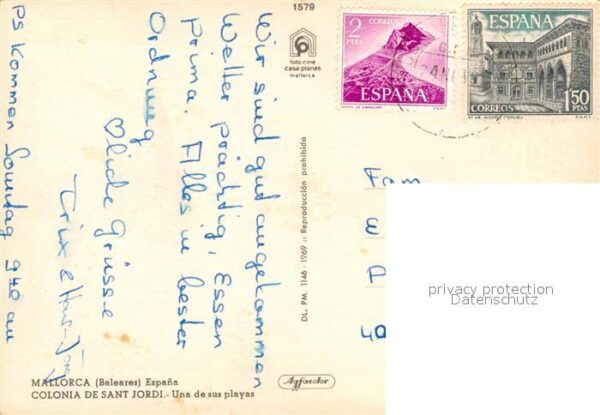 1579
foto cine
casa planas
mallorca
CORREOS
2
PTAS
ESPAÑA
ESPAÑA
CORREOS
1'50
PTAS
Wir sind gut angekommen
Wetter prächtig, Essen
prima. Alles in bester
Ordnung
♡liche Grüsse
Trix & Hans-Jörg
PS kommen Sonntag 940 an
DL. PM. 1146 - 1969 :: Reproducción prohibida
Fam
E
P
40
privacy protection
Datenschutz
MALLORCA (Baleares) España
COLONIA DE SANT JORDI.- Una de sus playas
Agfacolor